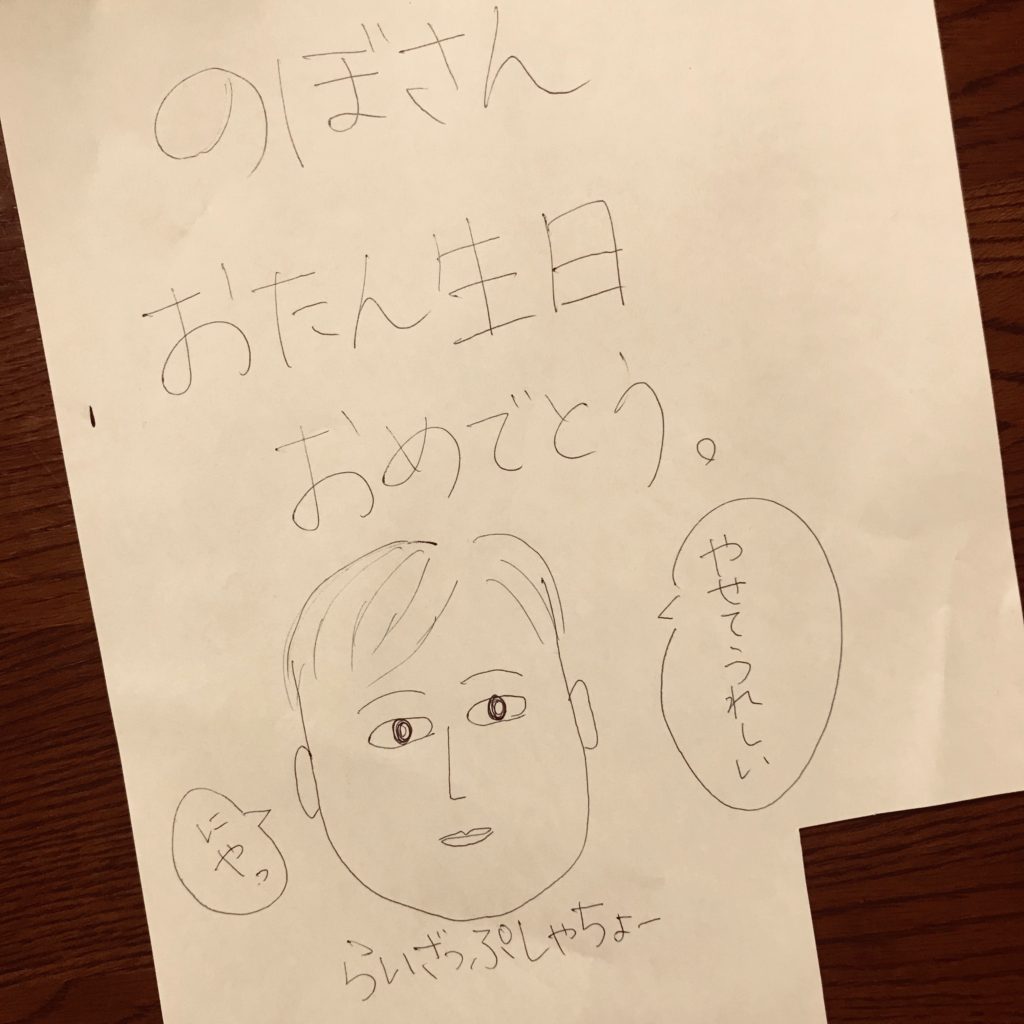 のぼさん
おたん生日
おめでとう。
やせてうれしい
にやっ
らいざっぷしゃちょー